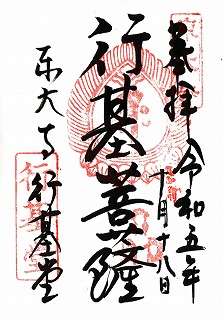 奉拝
令和五年
十月十八日
行基菩薩
東大寺
行基堂